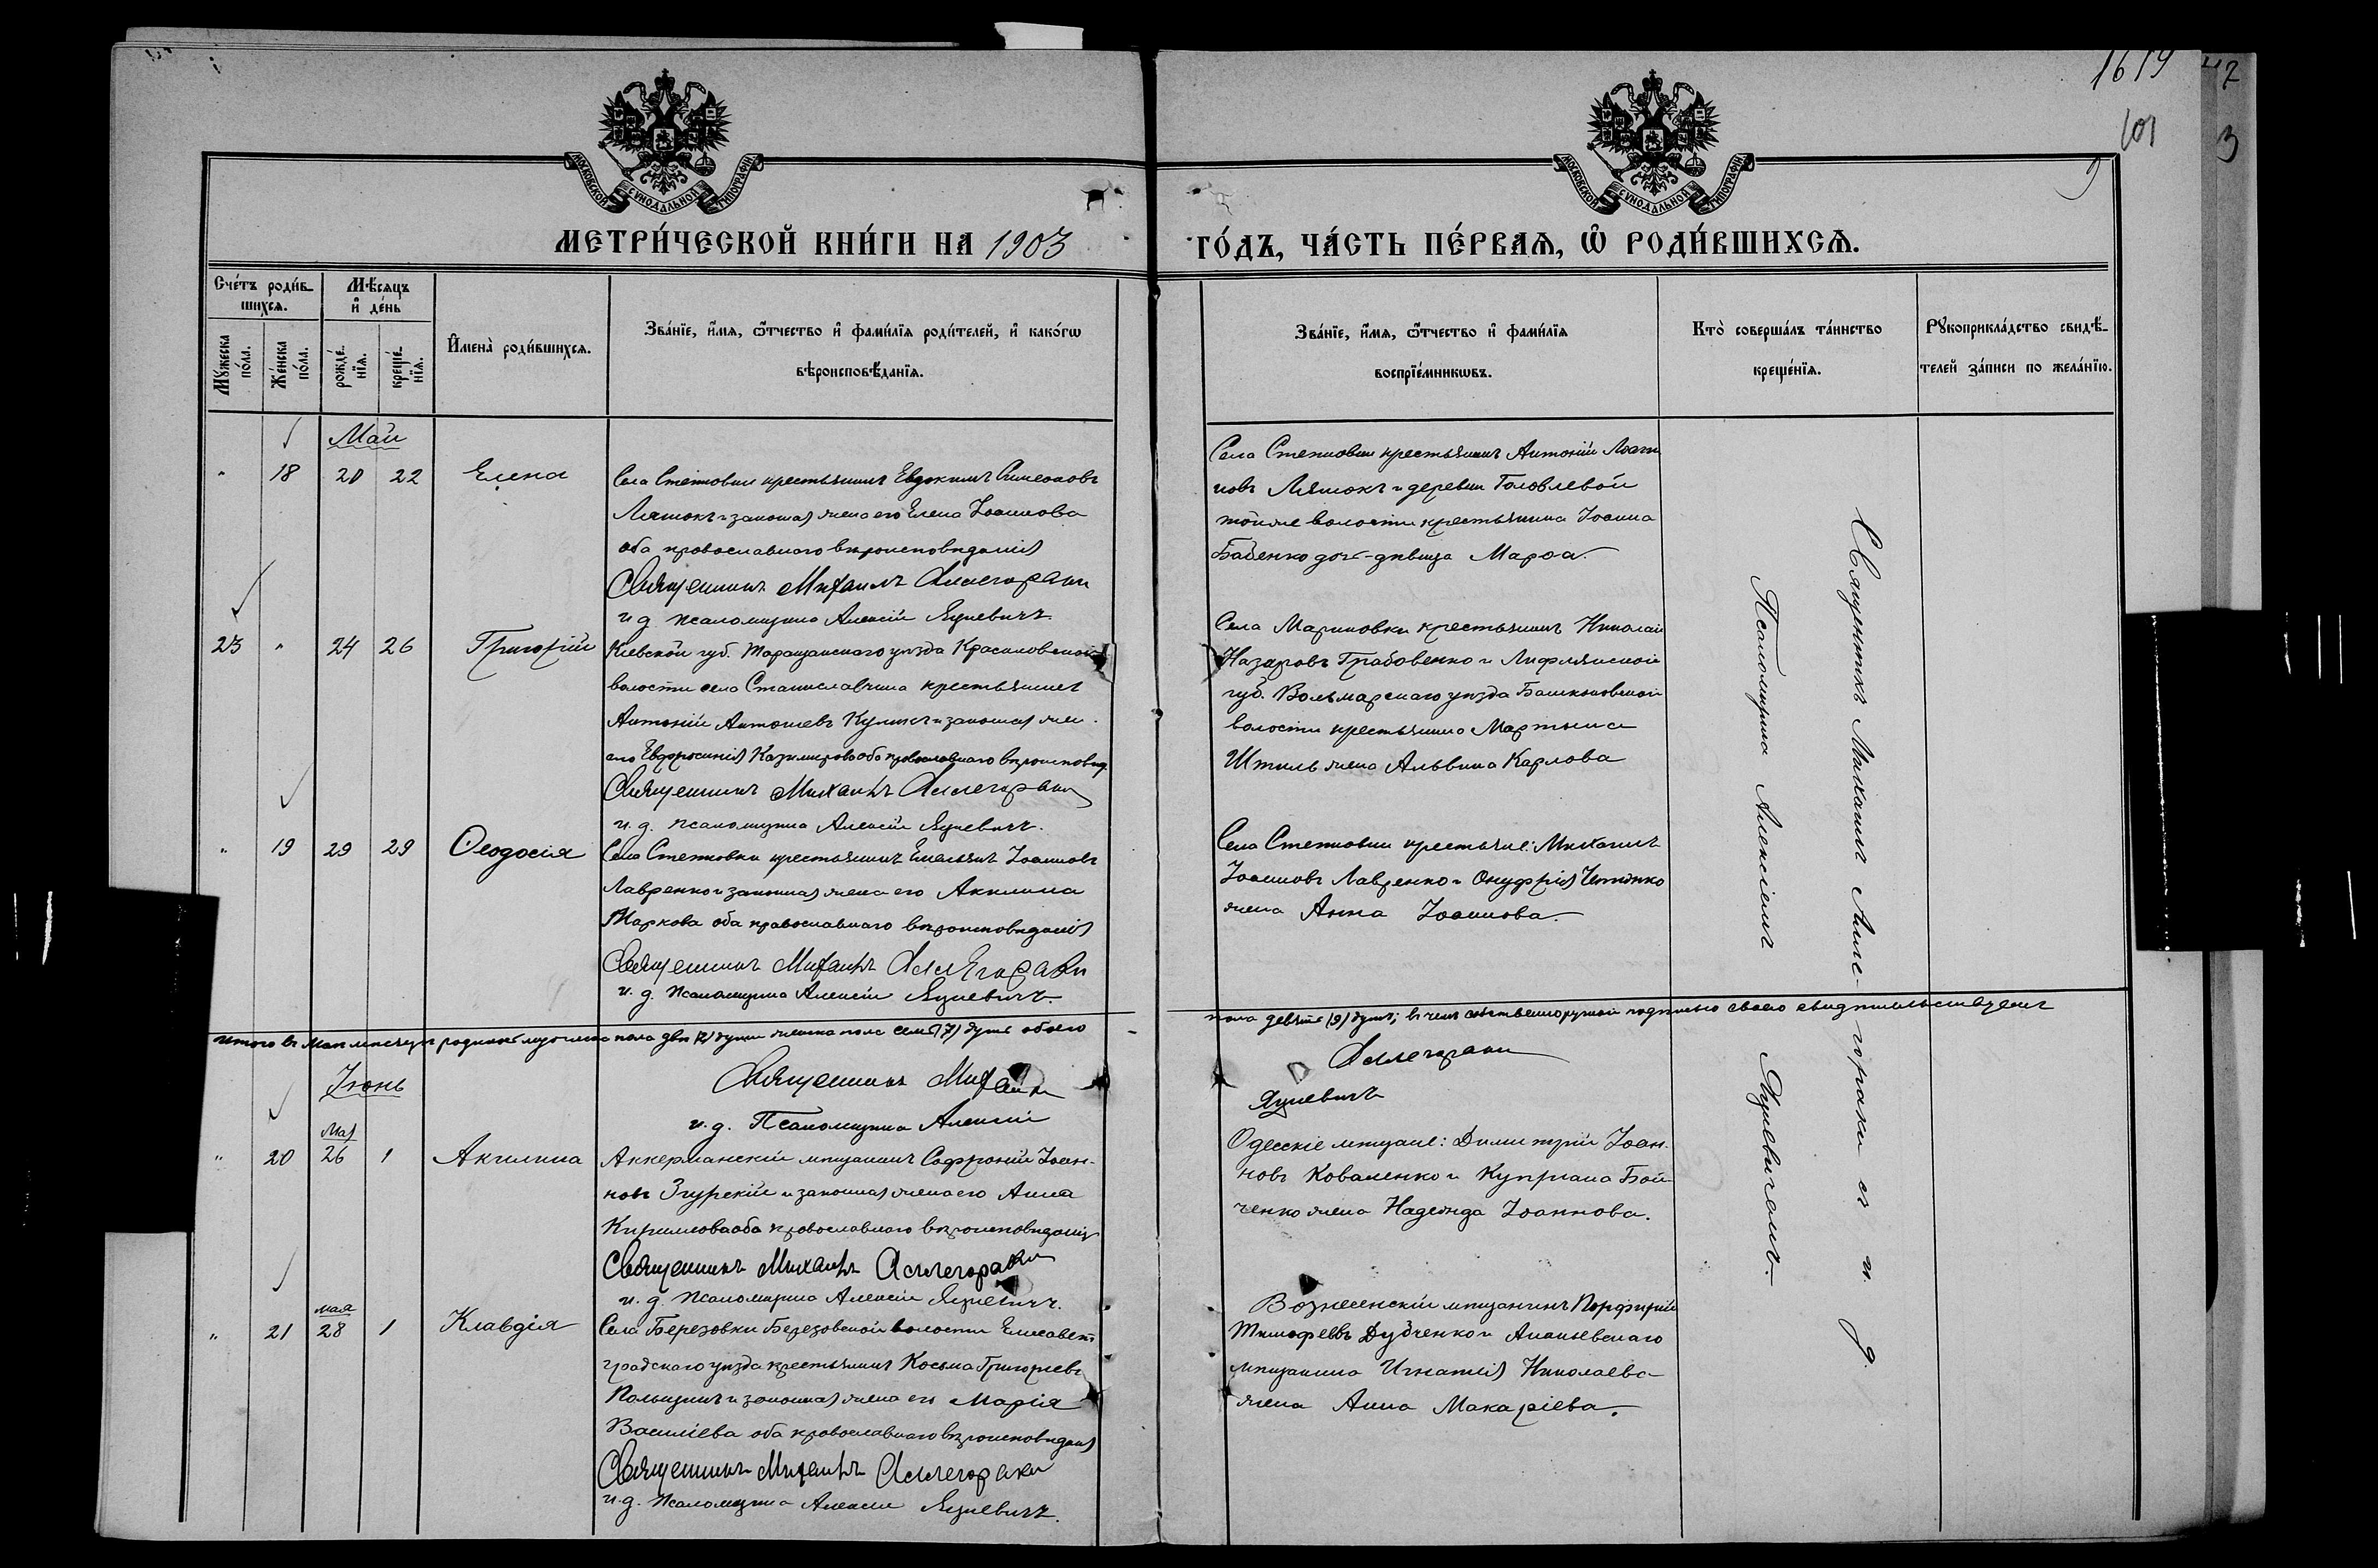 1619
101
9
42
3
МОСКОВСКОЙ СѴНОДАЛЬНОЙ ТИПОГРАФІИ
МОСКОВСКОЙ СѴНОДАЛЬНОЙ ТИПОГРАФІИ
МЕТРИ́ЧЕСКОЙ КНИ́ГИ НА 1903
ГО́ДЪ, ЧА́СТЬ ПЕ́РВАѦ, Ѽ РОДИ́ВШИХСѦ.
Сче́тъ роди́в-
шихсѧ.
Мѣ́сѧцъ
и҆ де́нь
Мꙋжеска
по́ла.
Же́нска
по́ла.
рожде́-
нїѧ.
креще́-
нїѧ.
И҆мена̀ роди́вшихсѧ.
Зва́нїе, и҆́мѧ, ѻ҆́тчество и҆ фами́лїѧ роди́телей, и҆ како́гѡ
вѣроисповѣ́данїѧ.
Зва́нїе, и҆́мѧ, ѻ҆́тчество и҆ фами́лїѧ
воспрїе́мникѡвъ.
Кто̀ соверша́лъ та́инство
креще́нїѧ.
Рꙋкоприкла́дство свидѣ́-
телей за́писи по жела́нїю.
Май
" 18 20 22 Елена
Села Степковки крестьянинъ Евдокимъ Симеоновъ
Лятокъ и законная жена его Елена Іоаннова
оба православнаго вѣроисповѣданія
Священникъ Михаилъ Аллегораки
и. д. псаломщика Алексій Яцкевичъ.
Села Степковки крестьянинъ Антоній
новъ Лятокъ и деревни Головлевой
тойже волости крестьянина Іоанна
Бабенко дочь-дѣвица Марѳа.
23 " 24 26 Григорій
Кіевской губ. Таращанскаго уѣзда Красиловской
волости села Станиславчика крестьянинъ
Антоній Антоніевъ Куликъ и законная жен.
его Евфросинія Казимирова оба православнаго вѣроисповѣд.
Священникъ Михаилъ Аллегораки
и. д. псаломщика Алексій Яцкевичъ.
Села Мариновки крестьянинъ Николай
Назаровъ Грабовенко и Лифлянской
губ. Вольмарскаго уѣзда
волости крестьянина Мартына
Штиль жена Альвина Карлова
" 19 29 29 Ѳеодосія
Села Степковки крестьянинъ Емельянъ Іоанновъ
Лавренко и законная жена его Акилина
Маркова оба православнаго вѣроисповѣданія
Священникъ Михаилъ Аллегораки
и. д. псаломщика Алексій Яцкевичъ.
Села Степковки крестьяне: Михаилъ
Іоанновъ Лавренко и Онуфрія
жена Анна Іоаннова.
Итого въ Маѣ мѣсяцѣ родилось мужеска пола двѣ (2) души женска пола семь (7) душъ обоего
пола девять (9) душъ; въ чемъ собственноручной подписью своею свидѣтельствуемъ
Священникъ Михаилъ Аллегораки
и. д. Псаломщика Алексій Яцкевичъ
Іюнь
" 20 Мая 26 1 Акилина
Аккерманскій мѣщанинъ Софроній Іоан-
новъ Згурскій и законная жена его Анна
Кириллова оба православнаго вѣроисповѣданія
Священникъ Михаилъ Аллегораки
и. д. псаломщика Алексій Яцкевичъ.
Одесскіе мѣщане: Димитрій Іоан-
новъ Коваленко и Купріана Бой-
ченко жена Надежда Іоаннова.
" 21 мая 28 1 Клавдія
Села Березовки Березовской волости Елисавет
градскаго уѣзда крестьянинъ Косьма Григорьевъ
и законная жена его Марія
Василіева оба православнаго вѣроисповѣданія
Священникъ Михаилъ Аллегораки
и. д. псаломщика Алексій Яцкевичъ.
Вознесенскій мѣщанинъ Порфирій
Тимофеевъ Дубченко и Ананьевскаго
мѣщанина Игнатія Николаева
жена Анна Макаріева.
Священникъ Михаилъ Алле-гораки съ и. д.
Псаломщика Алексіемъ Яцкевичемъ.